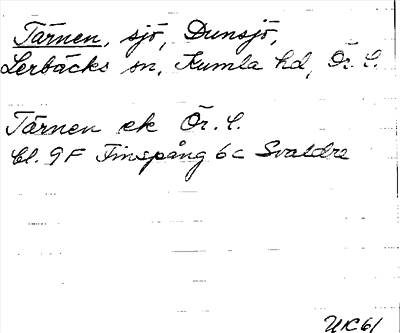 Tärnen, sjö, Dunsjö,
Lerbäcks sn, Kumla hd, Ör. l.
Tärnen ek Ör. l.
bl. 9F Finspång 6c Svaldre
UK61